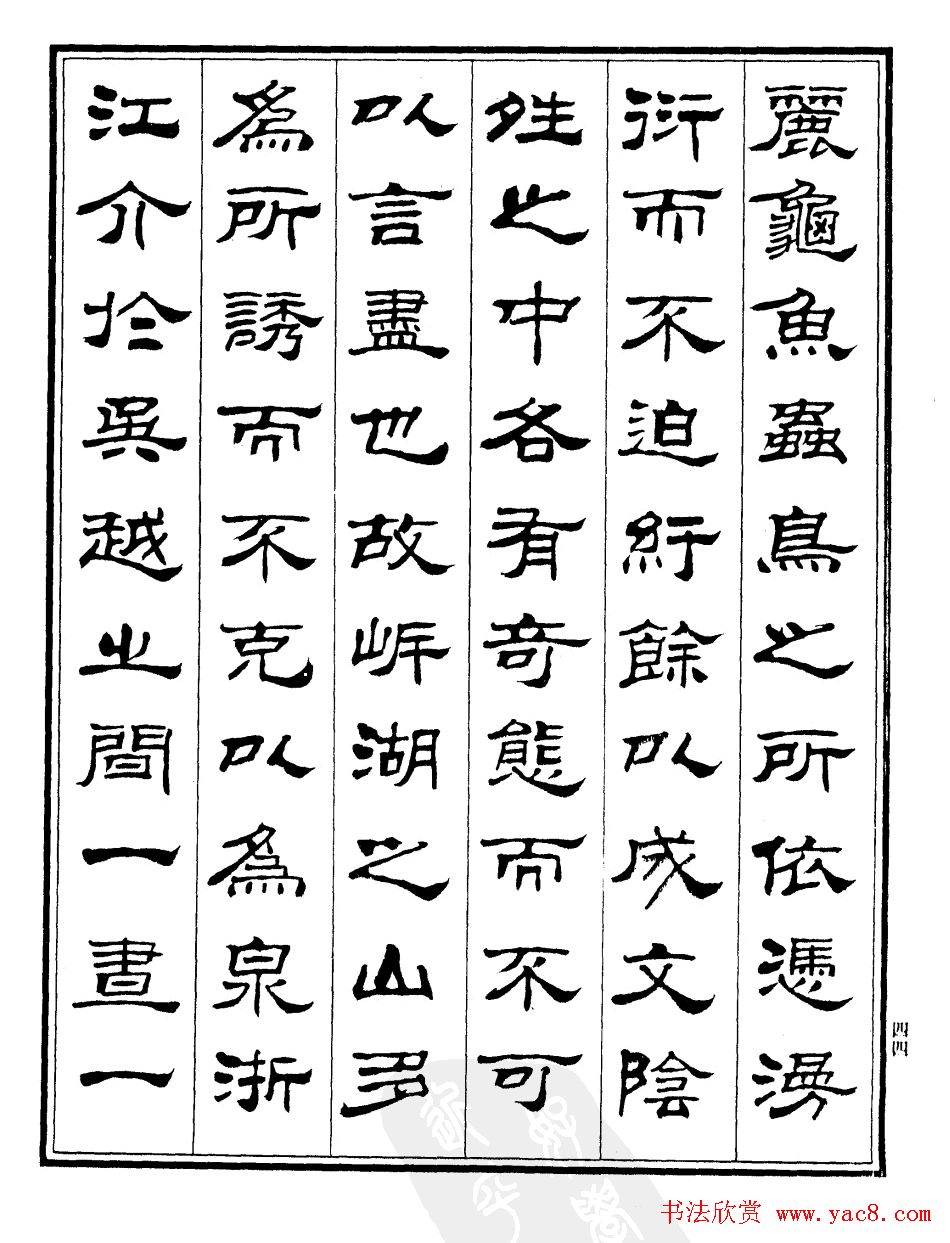 麗龜魚蟲鳥之所依憑漫
衍而不迫紆餘以成文陰
夝之中各有奇態而不可
以言盡也故岸湖之山多
為所誘而不克以為泉浙
江介於吳越之間一晝一
四四
书法欣赏 www.yac8.com